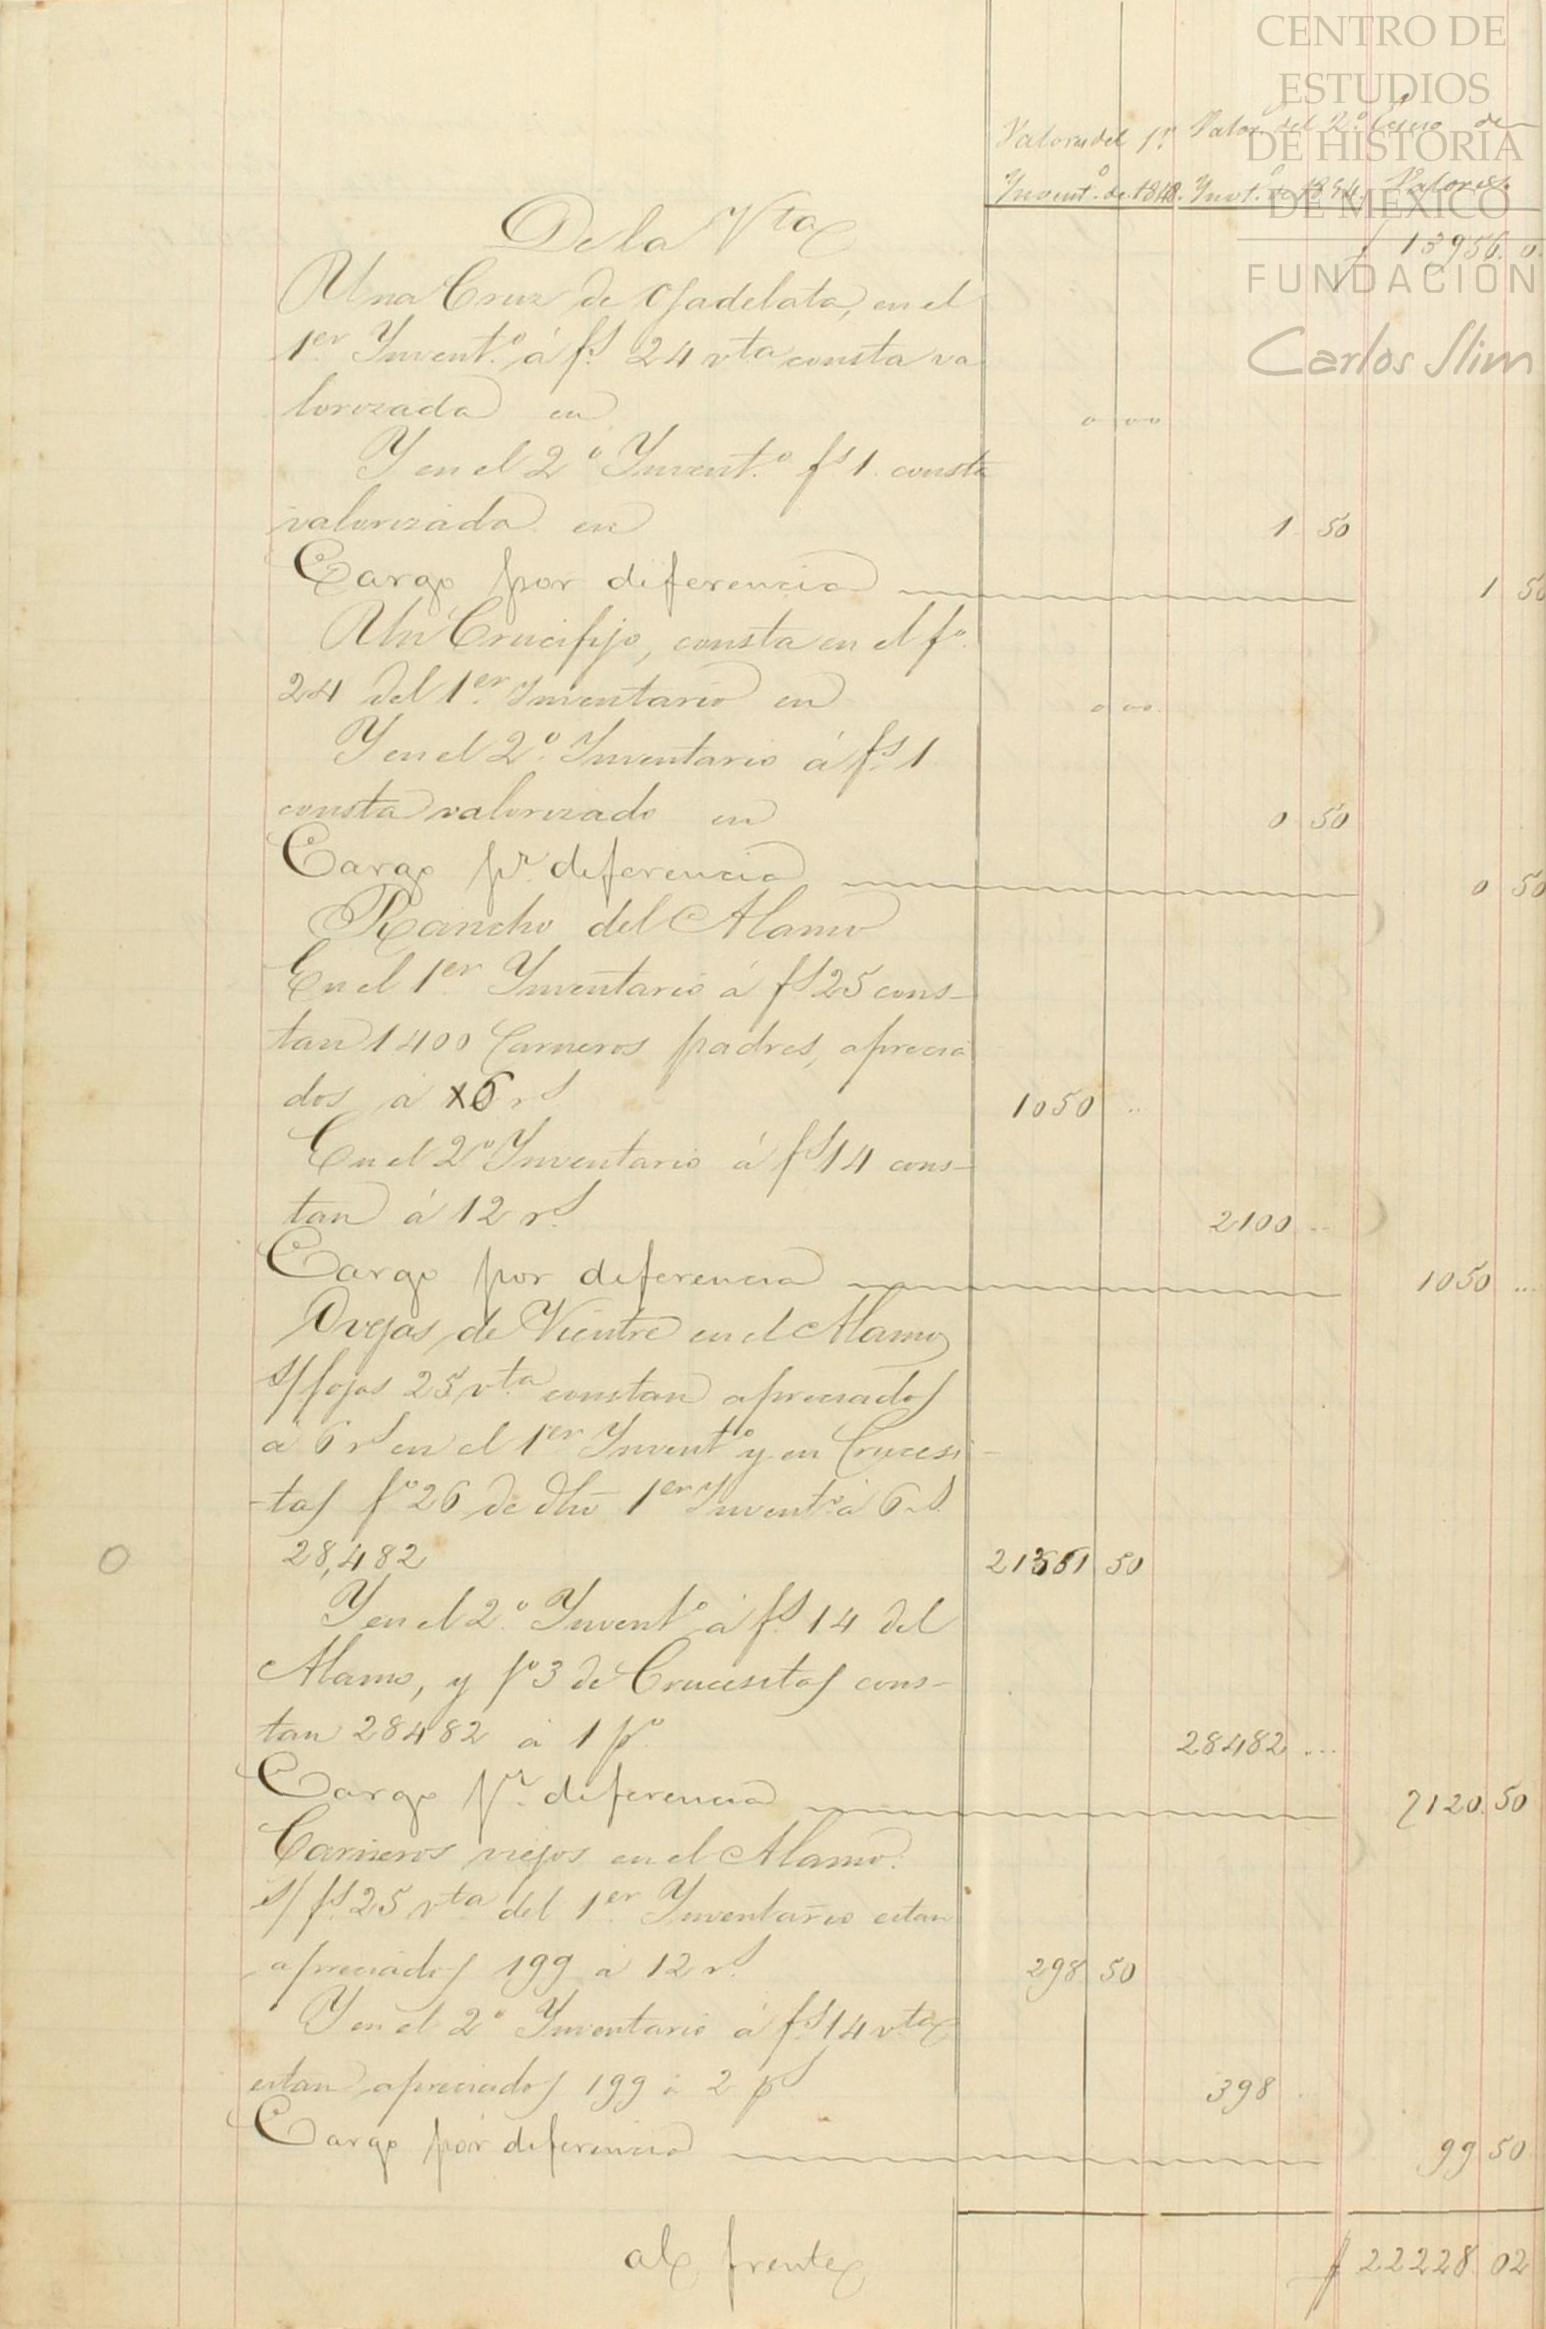 CENTRO DE
ESTUDIOS
DE HISTORIA
DE MÉXICO
FUNDACIÓN
Carlos Slim
Valores del 1.er Valor del 2.º de
Invent.º de 1848. Invt.º de Valores.
De la Vta
$ 13956. 0
Una Cruz de Ojadelata, en el
1er Invent.º á fs. 24 vta consta va
lorizada en 0 00
Y en el 2º Invent.º fs 1. consta
valorizada en 1 50
Cargo por diferencia 1 50
Un Crucifijo, consta en el fº.
24 del 1er. Inventario en 0 00.
Y en el 2º. Inventario á fs. 1
consta valorizado en 0 50
Cargo pr. diferencia 0 50
Rancho del Alamo
En el 1er Inventario á fs 25 cons-
tan 1400 Carneros padres, aprecia
dos á x6 rs 1050 ..
En el 2º Inventario á fs 14 cons-
tan á 12 rs. 2100 ...
Cargo por diferencia 1050 ...
Ovejas de Vientre en el Alamo
s/ fojas 25 vta constan apreciados
á 6 rs en el 1er Inventº y en Crucesi-
-tas fº 26 de dho 1er Inventº á 6 rs.
28,482 21361 50
Y en el 2º. Inventº á fs. 14 del
Alamo, y fº 3 de Crucesitas cons-
tan 28482 á 1 pº. 28482 ...
Cargo pr. diferencia 7120. 50
Carneros viejos en el Alamo.
s/ fs. 25 vta del 1er Inventario estan
apreciados 199 á 12 rs. 298 50
Y en el 2º Inventario á fs 14 vta
estan apreciados 199 á 2 ps 398 .
Cargo por diferencia 99 50
al frente $ 22228 02